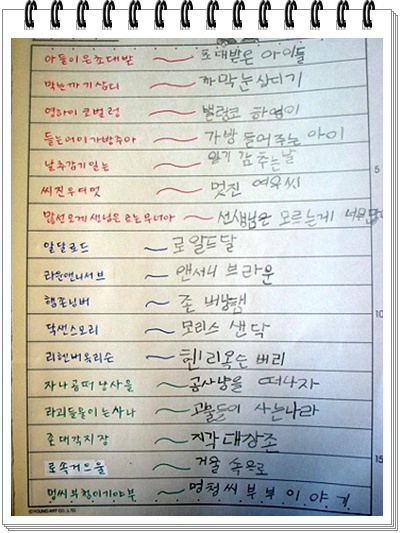 아들이은초대받 ~ 초대받은 아이들
막눈까기삼디 ~ 까막눈삼디기
영하이코벌렁 ~ 벌렁코 하영이
들는어이가방주아 ~ 가방 들어주는 아이
날추감기일는 ~ 일기 감추는날
5
씨진우여멋 ~ 멋진 여우씨
많선모게생님은르는무너아 ~ 선생님은 모르는게 너무많
알달로드 ~ 로알드달
라운앤니서브 ~ 앤서니 브라운
햄존닝버 ~ 존 버닝햄
10
닥샌스모리 ~ 모리스 샌닥
리헨버옥리슨 ~ 헨리옥슨 버리
자나곰떠냥사을 ~ 곰사냥을 떠나자
라괴들물이는사나 ~ 괴물들이 사는나라
존대각지장 ~ 지각대장존
15
로속거으울 ~ 거울 속으로
멍씨부청이기야부 ~ 멍청씨 부부 이야기
©YOUNG ART CO., LTD.